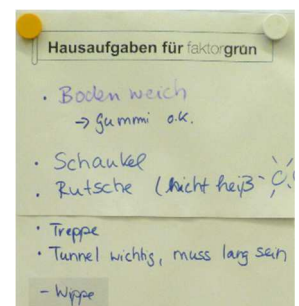 Hausaufgaben für faktorgrün
• Boden weich
→ Gummi o.k.
• Schaukel
• Rutsche (nicht heiß-
• Treppe
• Tunnel wichtig, muss lang sein
- Wippe